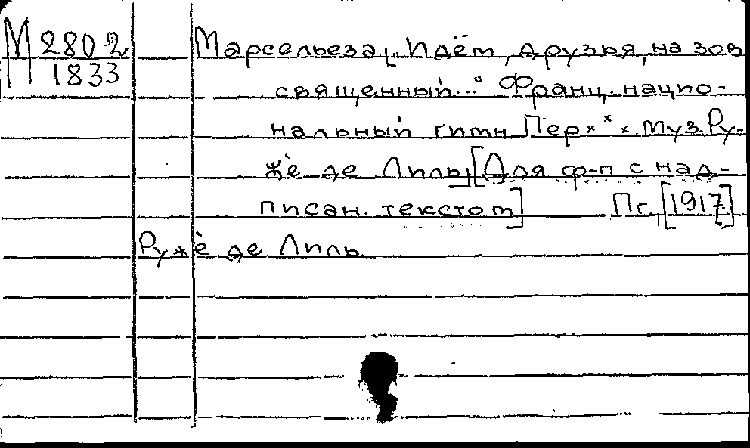 М 280-2
1833
Марсельеза, „Идём, друзья, на зов
священный..." Франц. нацио-
нальный гимн Пер. х х х Муз Ру-
же де Лиль, [Для ф-п с над-
писан. текстом] Пг. [1917]
Руже де Лиль